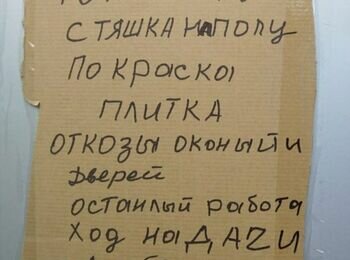 СТЯШКА НА ПОЛУ
ПО КРАСКА
ПЛИТКА
ОТКОЗЫ ОКОНЫЙ И
Дверей
ОСТАНЛЫЙ работа
ХОД На ДАZИ